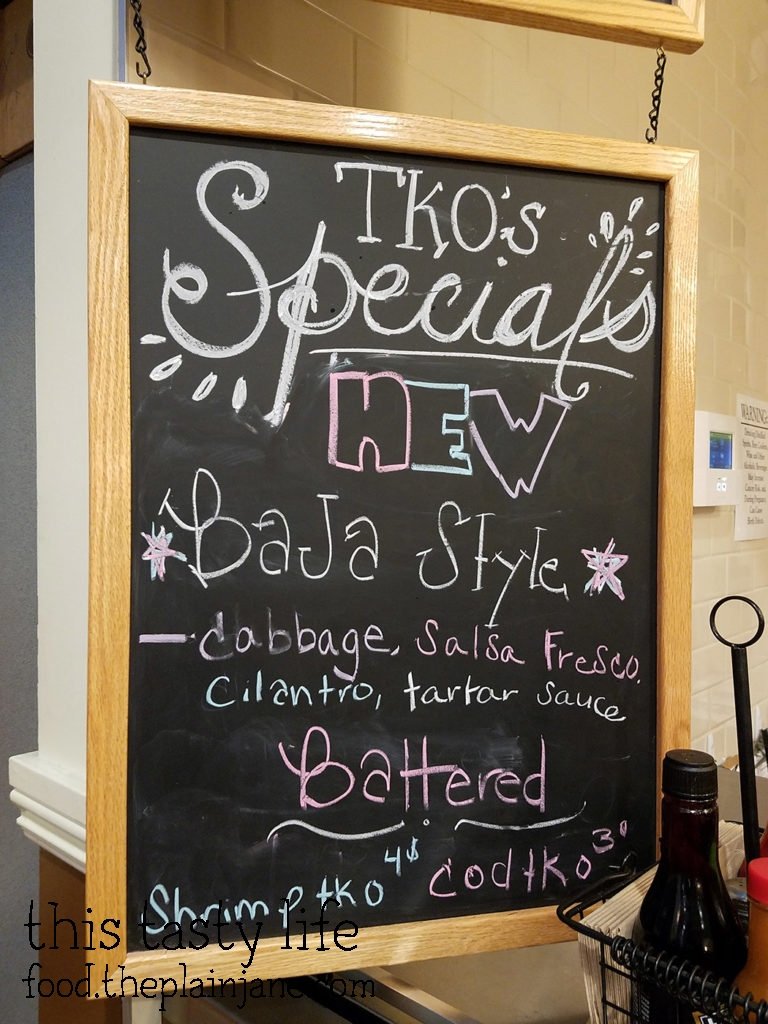 TKO's
Specials
NEW
Baja Style
- Cabbage, Salsa Fresco,
Cilantro, tartar sauce
Battered
Shrimp tko 4$
Cod tko 3
WARNING:
this tasty life
food.theplainjane.com